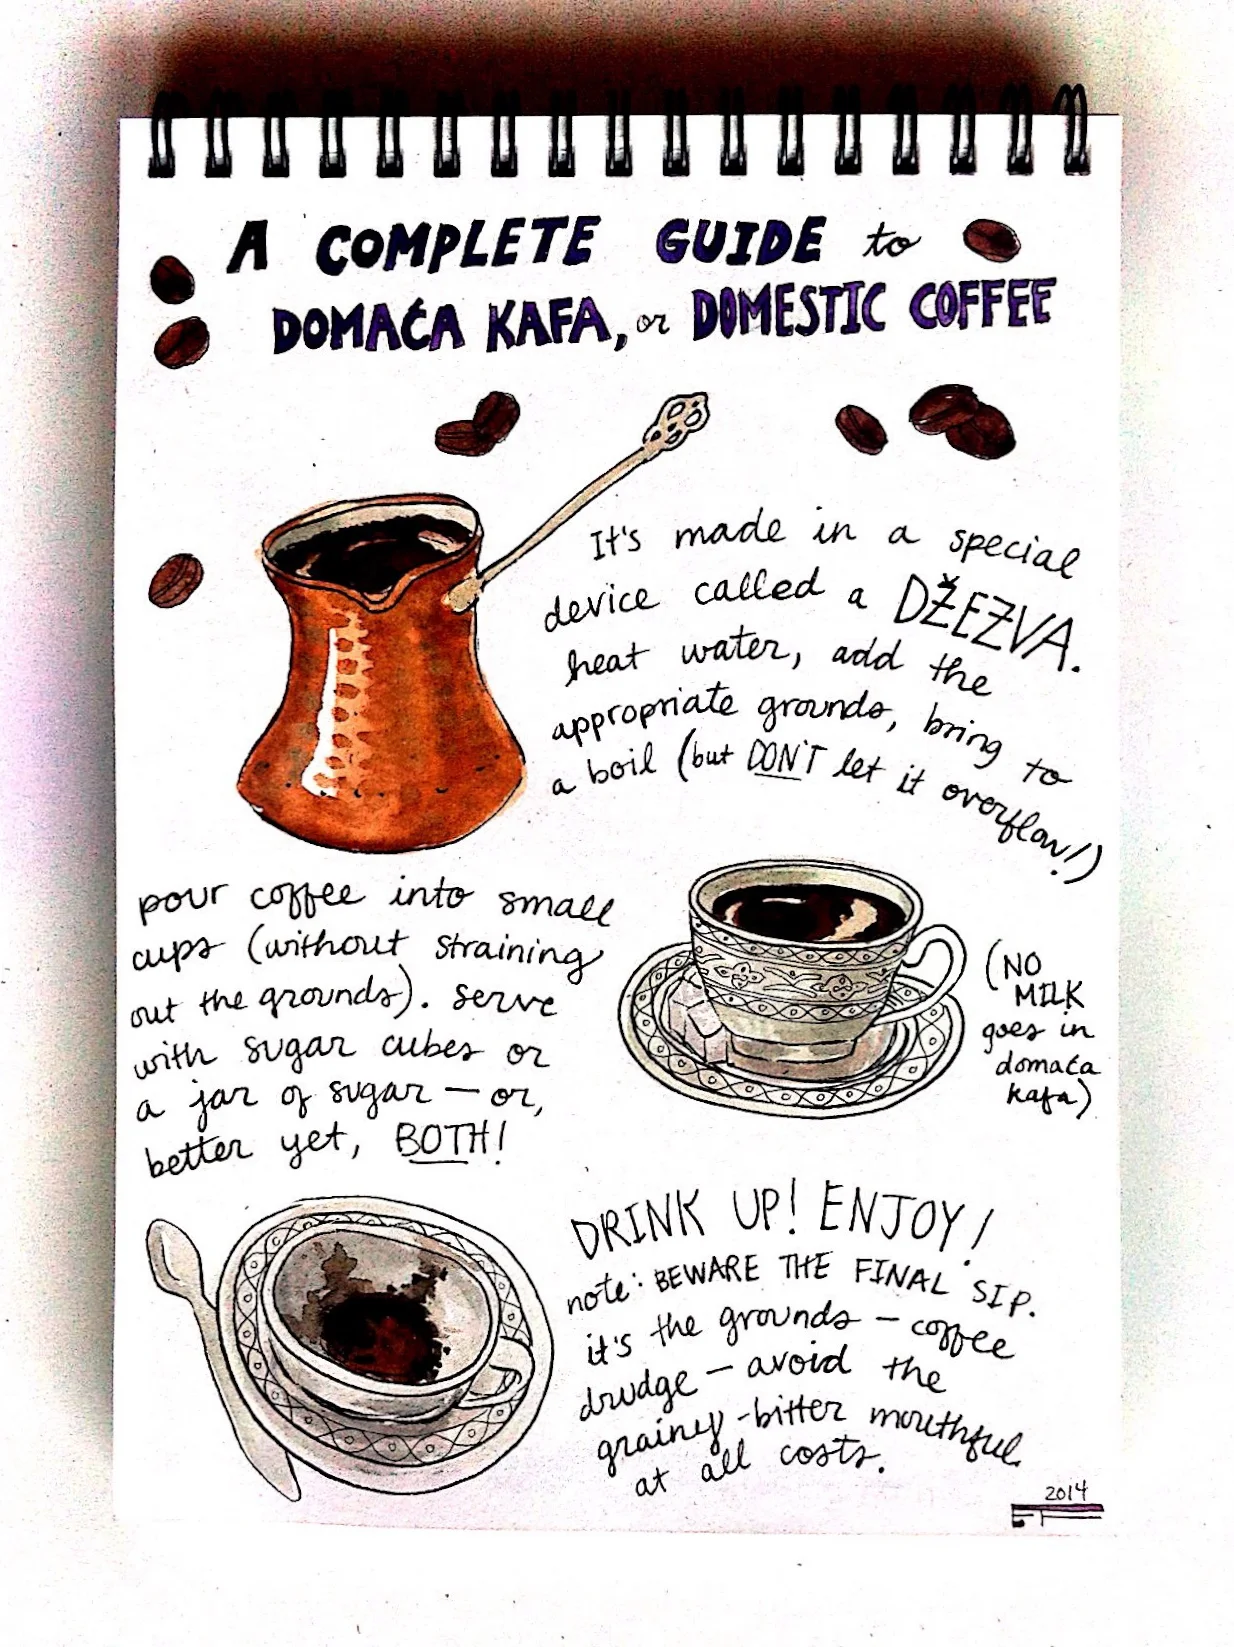 A COMPLETE GUIDE to
DOMAĆA KAFA, or DOMESTIC COFFEE
It's made in a special
device called a DŽEZVA.
heat water, add the
appropriate grounds, bring to
a boil (but DON'T let it overflow!)
pour coffee into small
cups (without straining
out the grounds). serve
with sugar cubes or
a jar of sugar — or,
better yet, BOTH!
(NO
MILK
goes in
domaća
kafa)
DRINK UP! ENJOY!
note: BEWARE THE FINAL SIP.
it's the grounds — coffee
drudge — avoid the
grainey-bitter mouthful
at all costs.
2014